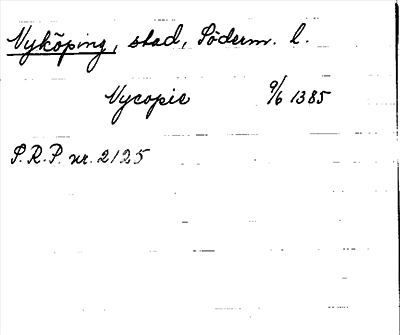 Nyköping, stad, Söderm. l.
Nycopie 9/6 1385
S.R.P. nr. 2125